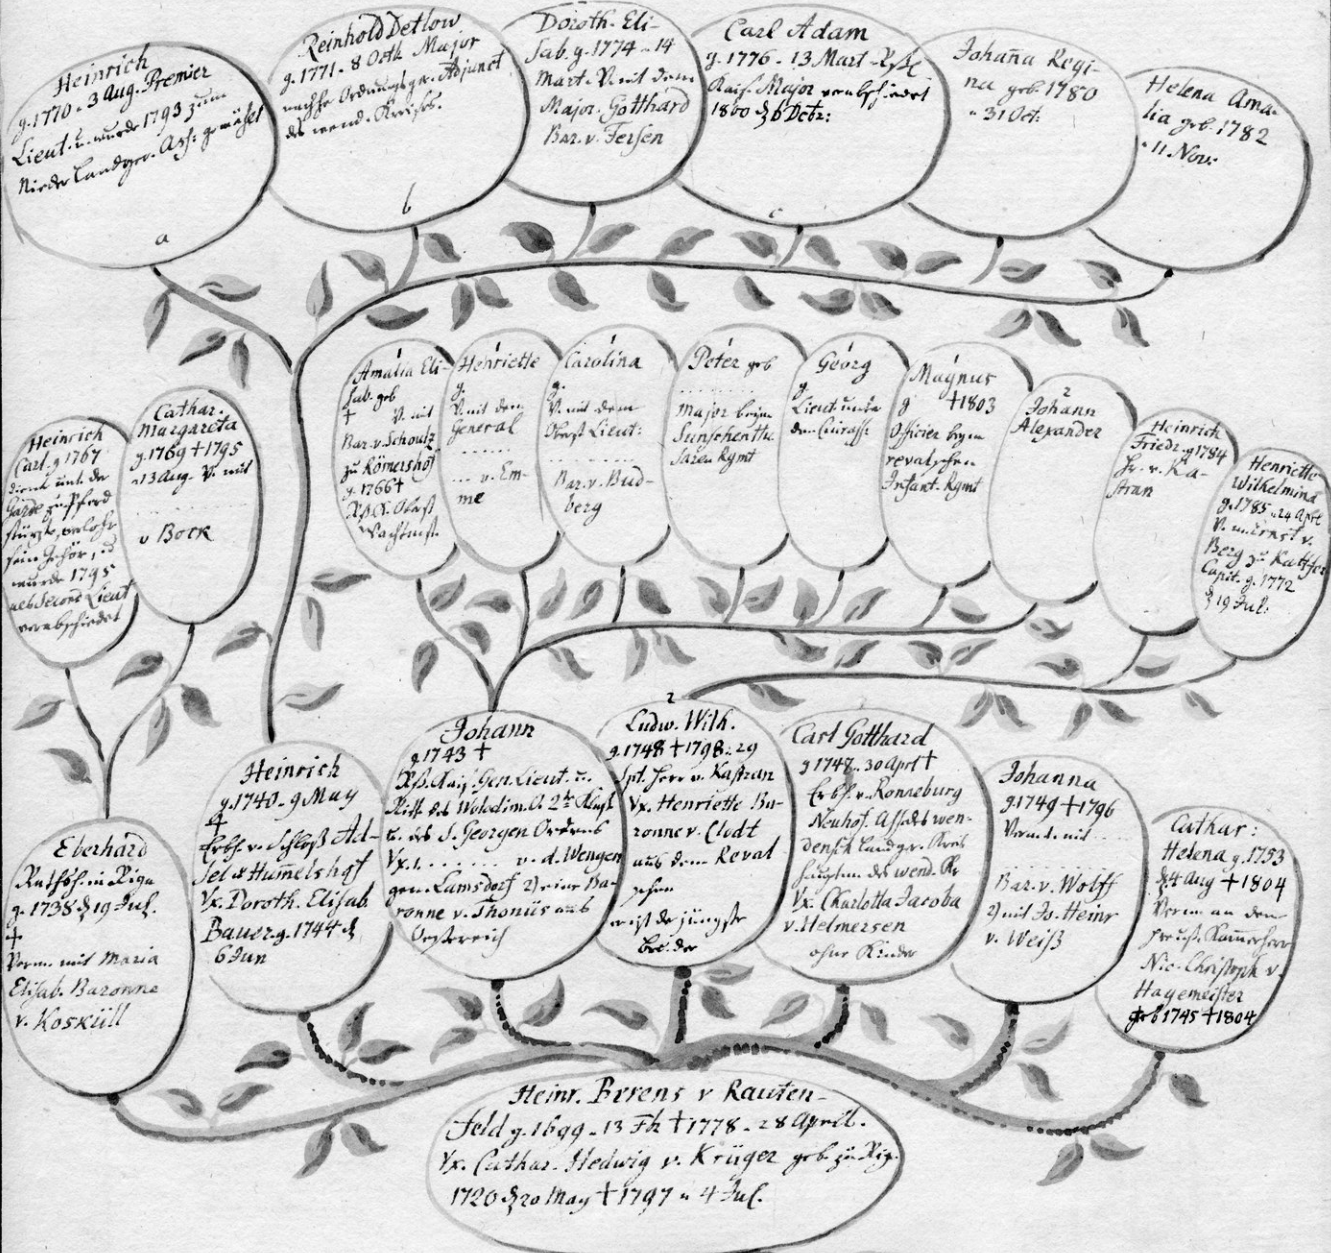 Heinrich
g. 1770. 3 Aug. Premier
Lieut. u. wurde 1793 zum
Nieder Landger. Ass: gewählt
a
Reinhold Detlow
g. 1771. 8 Octb Major
nachhe Ordnungsger. Adjunct
des wend. Kreises.
b
Doroth. Eli-
sab. g. 1774 .. 14
Mart. V. mit dem
Major. Gotthard
Bar. v. Fersen
Carl Adam
g. 1776. 13 Mart
Kais. Major verabschiedet
1800 d 6 Debr:
c
Johana Regi-
na geb 1780
.. 31 Oct.
Helena Ama-
lia geb. 1782
.. 11. Nov:
Heinrich
Carl. g 1767
diente unt. de
Garde zu Pferd
stürzte, verlohr
sein Gehör, u
wurde 1795
als Second Lieut
verabschiedet
Cathar.
Margareta
g. 1769 † 1795
.. 13 Aug. V. mit
. . . . . . . . .
v Bock
1
Amalia Eli-
sab. geb
† V. mit
Bar. v. Schoultz
zu Römershof
g. 1766 †
Obrist
Wachtmst.
1
Henriette
g.
V. mit dem
General
......
... v. Em-
me
1
Carolina
g.
V. mit dem
Obrist Lieut:
......
Bar. v. Bud-
berg
1
Peter geb
........
Major beym
Regmt
1
Georg
g
Lieut unter
den Cuirass.
1
Magnus
g † 1803
Officier beym
revalschen
Infant. Rgmt
2
Johann
Alexander
Heinrich
Friedr. g 1784
Hr. v. Ka-
stran
Henriette
Wilhelmina
g. 1785 .. 24 Aprl
V. m. Ernst v.
Berg zu Kattfer
Capit. g. 1772
d 19 Jul.
Eberhard
Rathsh. in Riga
g. 1738 d 19 Jul.
†
Verm. mit Maria
Elisab. Baronne
v. Kosküll
Heinrich
g. 1740. 9 May
†
Erbh. v. Schloß Ad-
sel & Humelshof
Ux. Doroth. Elisab.
Bauer. g. 1744 d
6 Jun
Johann
g 1743 †
Rß. Kais. Gen. Lieut. u.
Ritt. des Wolodim. O. 2tr Klasse
u. des S. Georgen Ordens
Ux. 1. . . . . . . v. d. Wengen
gen. Lamsdorf 2) eine Ba-
ronne v. Thonüs aus
Oestereich
2
Ludw. Wilh.
g. 1748 † 1798 .. 29
Spt. Herr v. Kastran
Ux. Henriette Ba-
ronne v. Clodt
aus dem Reval
schen
er ist der jüngste
Bruder
Carl Gotthard
g 1747 .. 30 Aprl †
Erbh. v. Ronneburg
Neuhof. Assess. wen-
densch. Landger. Kreis
hauptm. des wend. Kr
Ux. Charlotta Jacoba
v. Helmersen
ohne Kinder
Johanna
g. 1749 † 1796
Verm. 1. mit ..
Bar. v. Wolff
2) mit Jo. Heinr
v. Weiß
Cathar:
Helena g. 1753
d 4 Aug † 1804
Verm. an den
preuß. Kammerherr
Nic. Christoph v.
Hagemeister
geb 1745 † 1804
Heinr. Berens v Rauten-
feld g. 1699 .. 13 Fb † 1778 .. 28 April.
Ux. Cathar. Hedwig v. Krüger geb. zu Rig.
1720 d 20 May † 1797 .. 4 Jul.